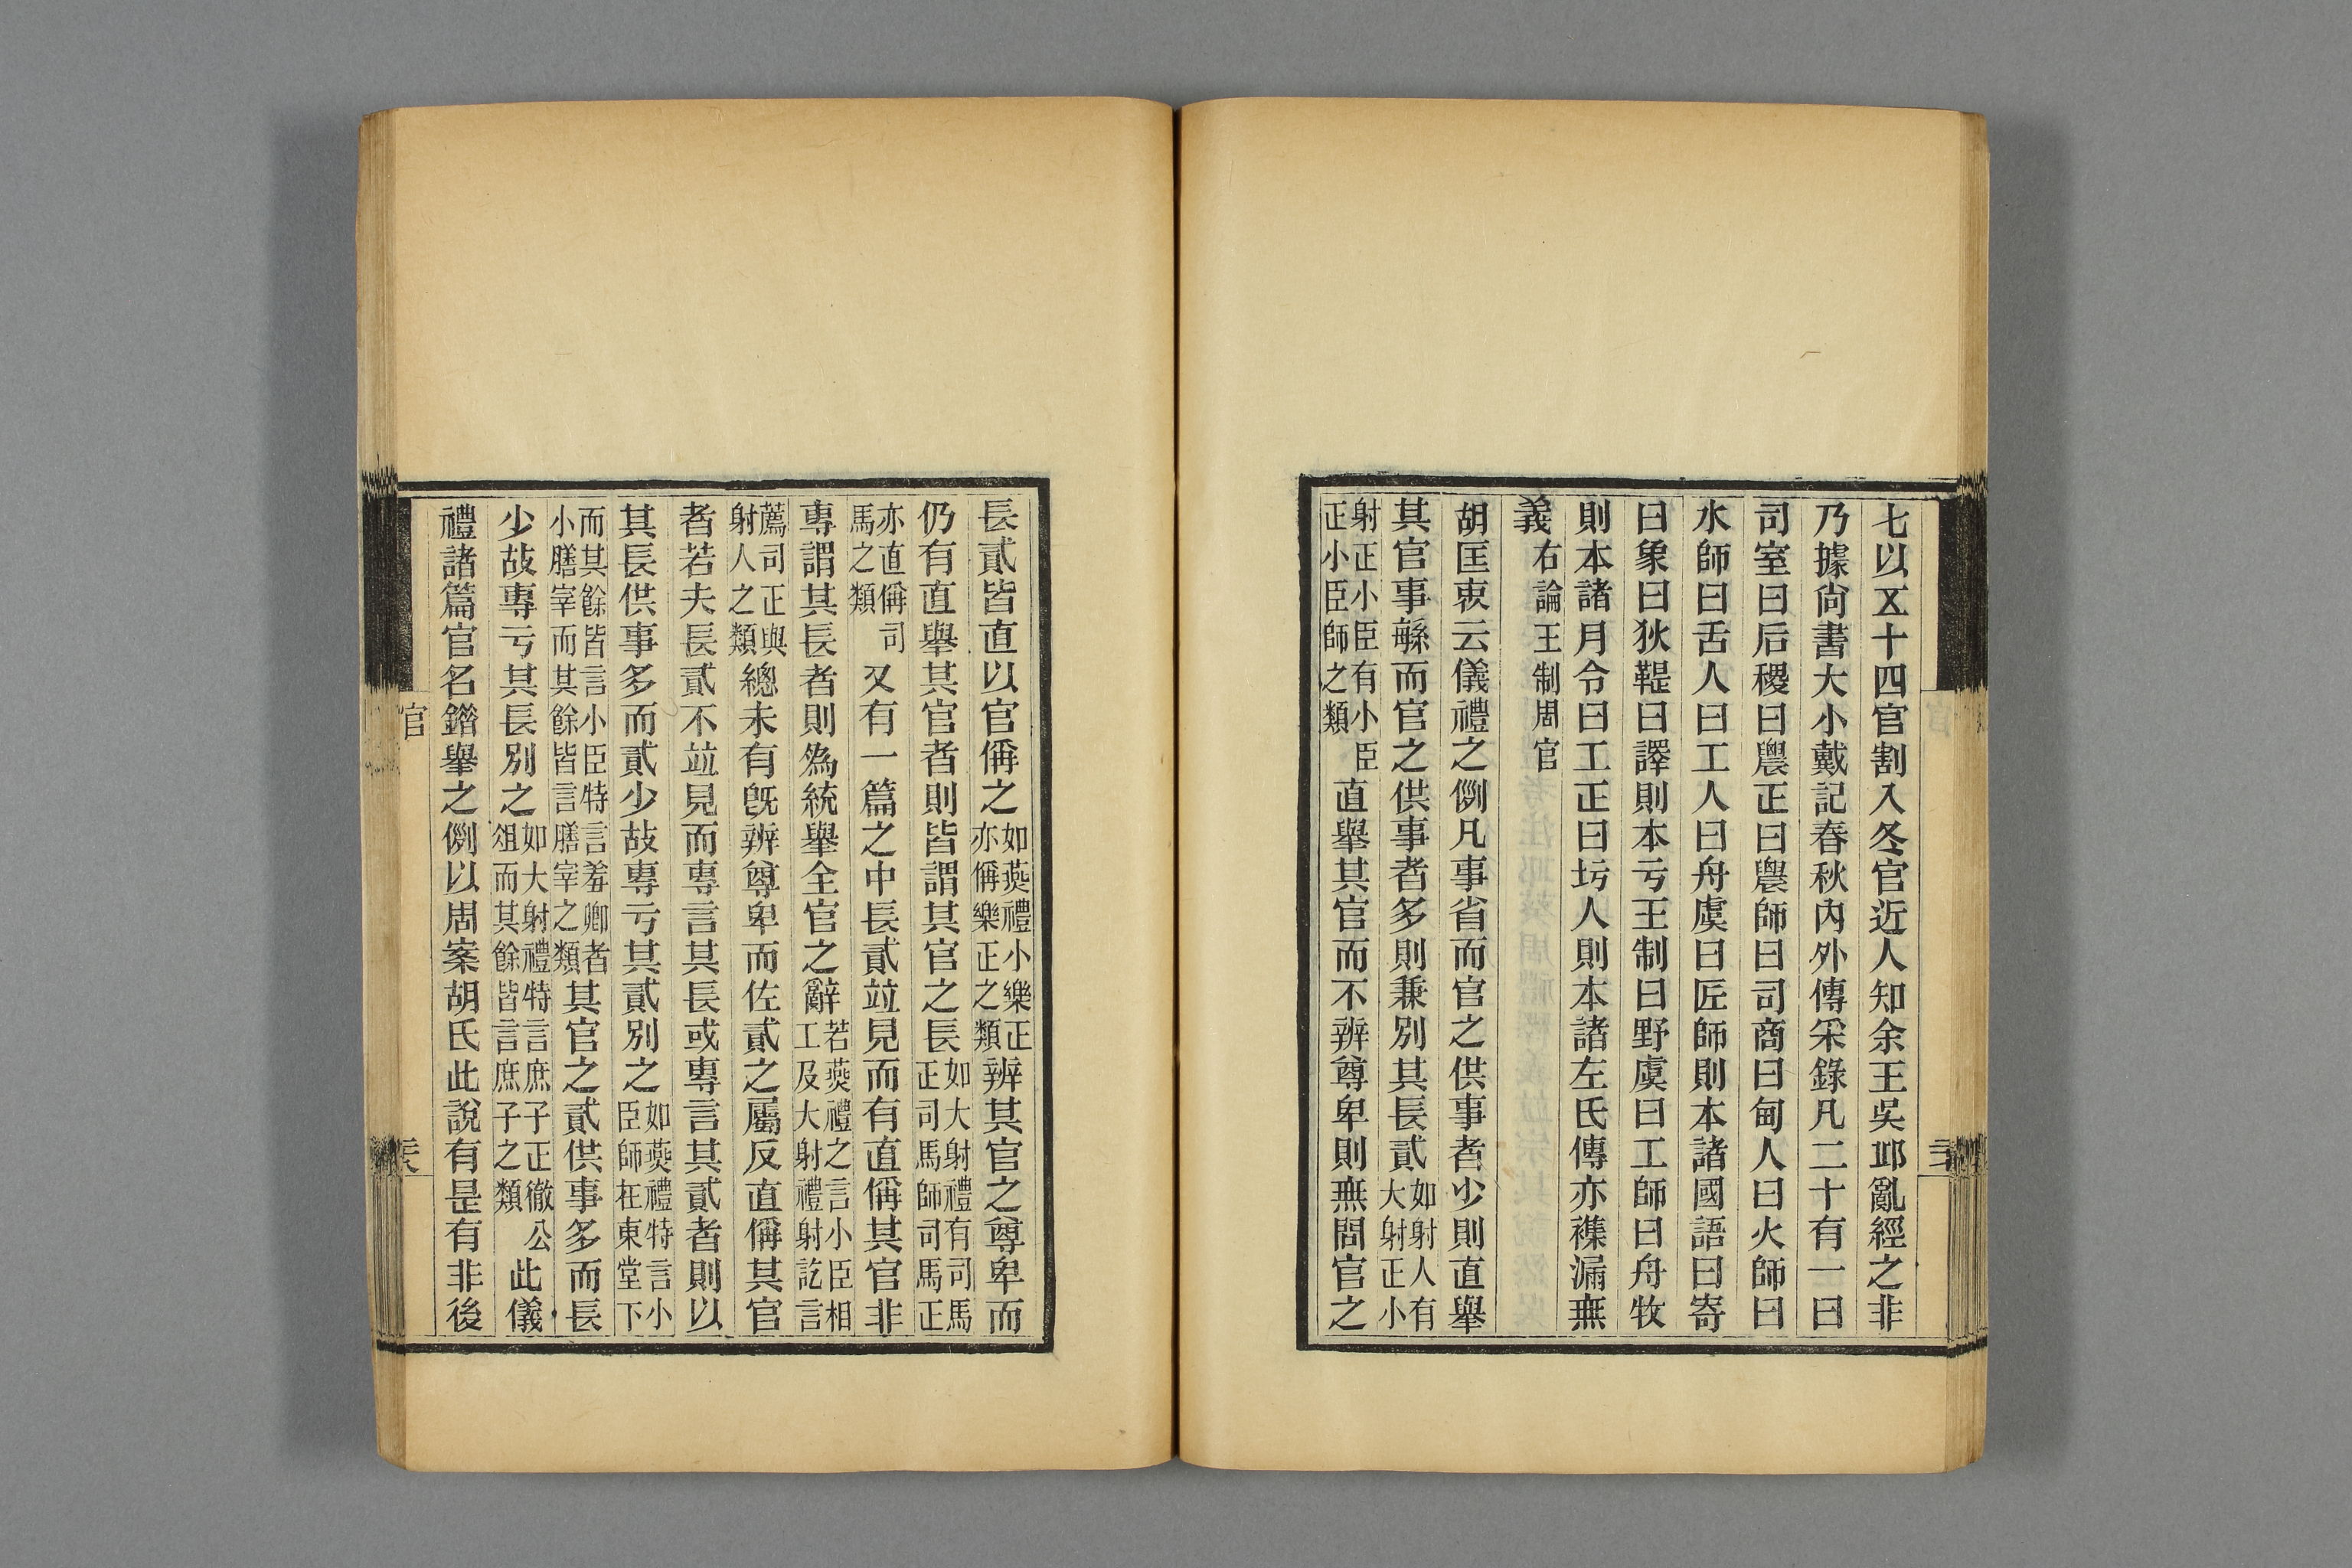 七以㐅十四官割入冬官近人知余王吳邱亂經之非
乃據尙書大小戴記春秋內外傳采錄凡二十有一曰
司室曰后稷曰農正曰農師曰司商曰甸人曰火師曰
水師曰舌人曰工人曰舟虞曰匠師則本諸國語曰寄
曰象曰狄鞮曰譯則本亏王制曰野虞曰工師曰舟牧
則本諸月令曰工正曰圬人則本諸左氏傳亦襍漏無
義右論王制周官
胡匡衷云儀禮之例凡事省而官之供事者少則直舉
其官事緐而官之供事者多則兼別其長貳如射人有大射正小
射正小臣有小臣正小臣師之類直舉其官而不辨尊卑則無問官之
長貳皆直以官偁之如燕禮小樂正亦偁樂正之類辨其官之尊卑而
仍有直舉其官者則皆謂其官之長如大射禮有司馬正司馬師司馬正
亦直偁司馬之類又有一篇之中長貳竝見而有直偁其官非
專謂其長者則爲統舉全官之辭若燕禮之言小臣相工及大射禮射訖言
薦司正與射人之類總未有旣辨尊卑而佐貳之屬反直偁其官
者若夫長貳不竝見而專言其長或專言其貳者則以
其長供事多而貳少故專亏其貳別之如燕禮特言小臣師在東堂下
而其餘皆言小臣特言羞卿者小膳宰而其餘皆言膳宰之類其官之貳供事多而長
少故專亏其長別之如大射禮特言庶子正徹公俎而其餘皆言庶子之類此儀
禮諸篇官名錯舉之例以周案胡氏此說有是有非後
官